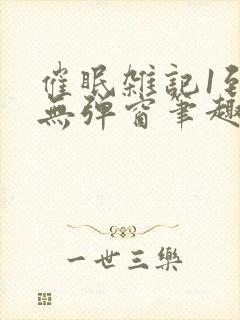 催眠雑記1至
無弹窗筆趣
一世三樂